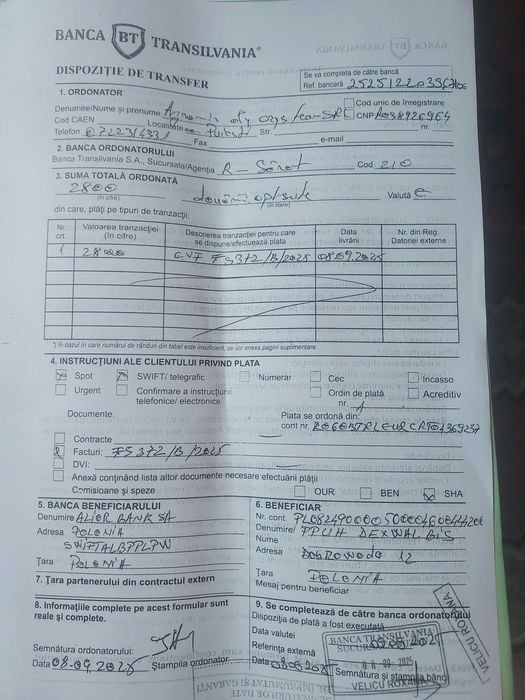 BANCA BT TRANSILVANIA®
DISPOZIȚIE DE TRANSFER
Se va completa de către bancă
Ref. bancară
1. ORDONATOR
Denumire/Nume și prenume
Cod unic de înregistrare
Cod CAEN Localitate Str. CNP RO38926964
Telefon Fax e-mail nr.
2. BANCA ORDONATORULUI
Banca Transilvania S.A., Sucursala/Agenția Cod 210
3. SUMA TOTALĂ ORDONATĂ
2800 două mii opt sute Valuta €
(în cifre) (în litere)
din care, plăți pe tipuri de tranzacții:
Nr. crt. Valoarea tranzacției (în cifre) Descrierea tranzacției pentru care se dispune/efectuează plata Data livrării Nr. din Reg. Datoriei externe
1 2800 CVF FS372/B/2025 08.09.2025
*) în cazul în care numărul de rânduri din tabel este insuficient, se vor anexa pagini suplimentare.
4. INSTRUCȚIUNI ALE CLIENTULUI PRIVIND PLATA
Spot SWIFT/ telegrafic Numerar Cec Incasso
Urgent Confirmare a instrucțiunii telefonice/ electronice Ordin de plată Acreditiv
nr. 1
Documente: Plata se ordonă din:
cont nr.
Contracte
Facturi: FS372/B/2025
DVI:
Anexă conținând lista altor documente necesare efectuării plății
Comisioane și speze OUR BEN SHA
5. BANCA BENEFICIARULUI
Denumire ALIOR BANK SA
Adresa POLONIA
SWIFT ALBPPLPW
Țara POLONIA
6. BENEFICIAR
Nr. cont
Denumire/ Nume PPUH DEXWAL BIS
Adresa DOBROWODA 12
Țara POLONIA
Mesaj pentru beneficiar
7. Țara partenerului din contractul extern
8. Informațiile complete pe acest formular sunt reale și complete.
Semnătura ordonatorului:
Data 08.09.2025 Ștampila ordonator
9. Se completează de către banca ordonatorului
Dispoziția de plată a fost executată
Data valutei
Referința externă
Data 08.09.2025 Semnătura și ștampila băncii
BANCA TRANSILVANIA
08-09-2025
VELICU ROXANA
VELICU ROXANA